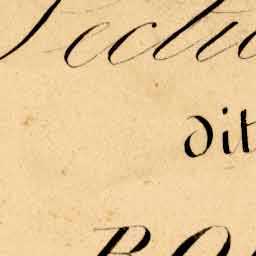 Secti
dit
BO